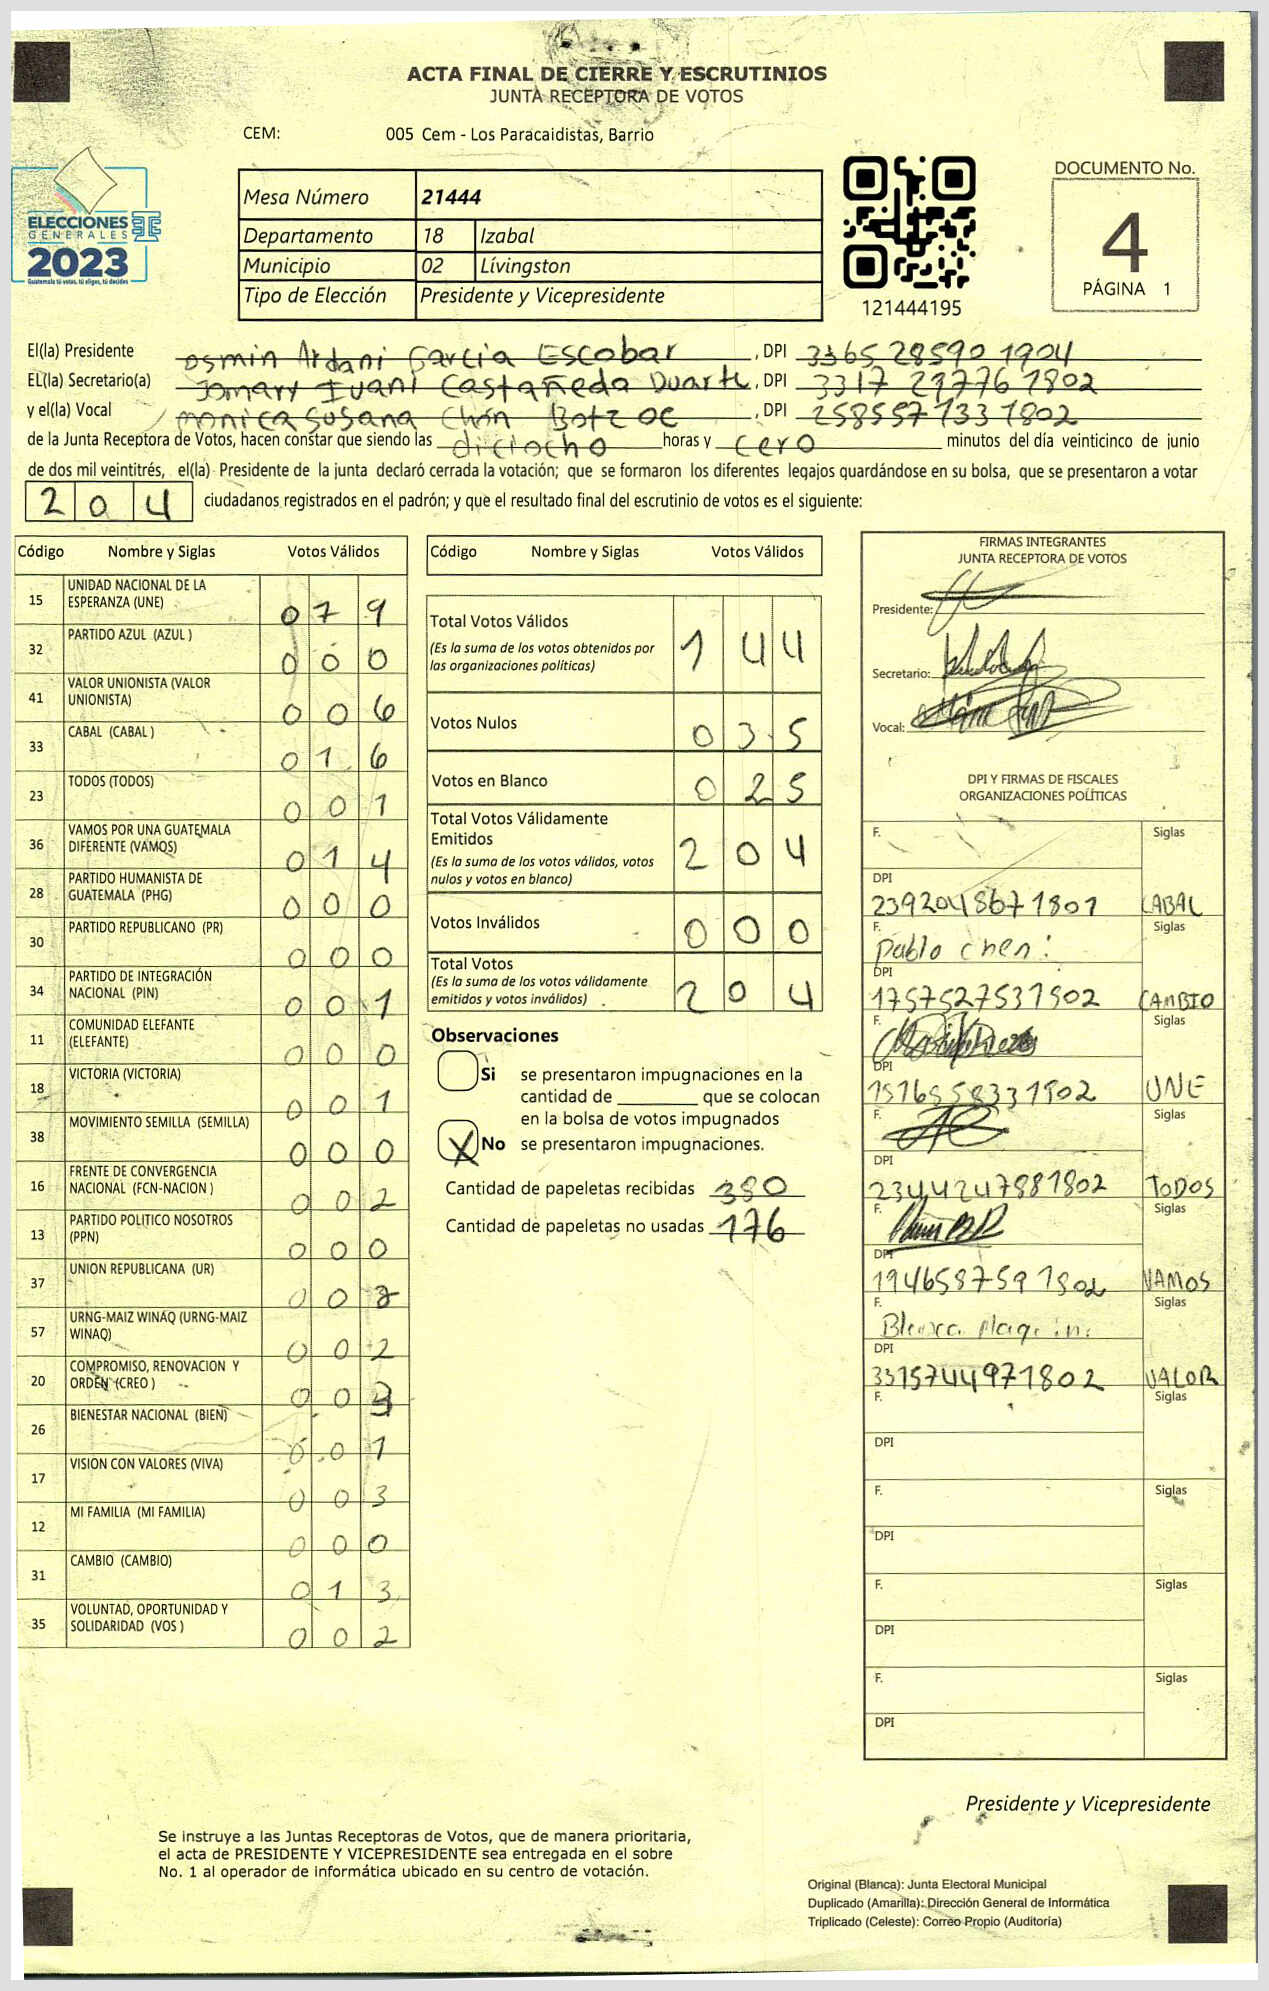 ACTA FINAL DE CIERRE Y ESCRUTINIOS
JUNTA RECEPTORA DE VOTOS
CEM: 005 Cem - Los Paracaidistas, Barrio
ELECCIONES
GENERALES
2023
Guatemala tú votas, tú eliges, tú decides
Mesa Número 21444
Departamento 18 Izabal
Municipio 02 Livingston
Tipo de Elección Presidente y Vicepresidente
121444195
DOCUMENTO No.
4
PÁGINA 1
El(la) Presidente Osmin Ardani Garcia Escobar , DPI 3365 28590 1904
EL(la) Secretario(a) Jomary Ivani Castañeda Duarte , DPI 3317 21776 1802
y el(la) Vocal monica Susana Chón Botzoc , DPI 258557133 1802
de la Junta Receptora de Votos, hacen constar que siendo las diciocho horas y cero minutos del día veinticinco de junio
de dos mil veintitrés, el(la) Presidente de la junta declaró cerrada la votación; que se formaron los diferentes legajos guardándose en su bolsa, que se presentaron a votar
204 ciudadanos registrados en el padrón; y que el resultado final del escrutinio de votos es el siguiente:
Código Nombre y Siglas Votos Válidos
15 UNIDAD NACIONAL DE LA ESPERANZA (UNE) 079
32 PARTIDO AZUL (AZUL ) 000
41 VALOR UNIONISTA (VALOR UNIONISTA) 006
33 CABAL (CABAL ) 016
23 TODOS (TODOS) 001
36 VAMOS POR UNA GUATEMALA DIFERENTE (VAMOS) 014
28 PARTIDO HUMANISTA DE GUATEMALA (PHG) 000
30 PARTIDO REPUBLICANO (PR) 000
34 PARTIDO DE INTEGRACIÓN NACIONAL (PIN) 001
11 COMUNIDAD ELEFANTE (ELEFANTE) 000
18 VICTORIA (VICTORIA) 001
38 MOVIMIENTO SEMILLA (SEMILLA) 000
16 FRENTE DE CONVERGENCIA NACIONAL (FCN-NACION ) 002
13 PARTIDO POLITICO NOSOTROS (PPN) 000
37 UNION REPUBLICANA (UR) 00
57 URNG-MAIZ WINAQ (URNG-MAIZ WINAQ) 002
20 COMPROMISO, RENOVACION Y ORDEN (CREO ) 00
26 BIENESTAR NACIONAL (BIEN) 001
17 VISION CON VALORES (VIVA) 003
12 MI FAMILIA (MI FAMILIA) 000
31 CAMBIO (CAMBIO) 013
35 VOLUNTAD, OPORTUNIDAD Y SOLIDARIDAD (VOS ) 002
Código Nombre y Siglas Votos Válidos
Total Votos Válidos 144
(Es la suma de los votos obtenidos por
las organizaciones políticas)
Votos Nulos 035
Votos en Blanco 025
Total Votos Válidamente
Emitidos 204
(Es la suma de los votos válidos, votos
nulos y votos en blanco)
Votos Inválidos 000
Total Votos 204
(Es la suma de los votos válidamente
emitidos y votos inválidos)
Observaciones
Si se presentaron impugnaciones en la
cantidad de ________ que se colocan
en la bolsa de votos impugnados
X No se presentaron impugnaciones.
Cantidad de papeletas recibidas 380
Cantidad de papeletas no usadas 176
FIRMAS INTEGRANTES
JUNTA RECEPTORA DE VOTOS
Presidente:
Secretario:
Vocal:
DPI Y FIRMAS DE FISCALES
ORGANIZACIONES POLÍTICAS
F. Siglas
DPI
2392048671801 CABAL
F. Pablo chen Siglas
DPI
1757527531502 CAMBIO
F. Siglas
DPI
1516558331502 UNE
F. Siglas
DPI
2344247881802 TODOS
F. Siglas
DPI
1946587591802 VAMOS
F. Blanca Siglas
DPI
3315744971802 VALOR
F. Siglas
DPI
F. Siglas
DPI
F. Siglas
DPI
F. Siglas
DPI
Presidente y Vicepresidente
Se instruye a las Juntas Receptoras de Votos, que de manera prioritaria,
el acta de PRESIDENTE Y VICEPRESIDENTE sea entregada en el sobre
No. 1 al operador de informática ubicado en su centro de votación.
Original (Blanca): Junta Electoral Municipal
Duplicado (Amarilla): Dirección General de Informática
Triplicado (Celeste): Correo Propio (Auditoría)